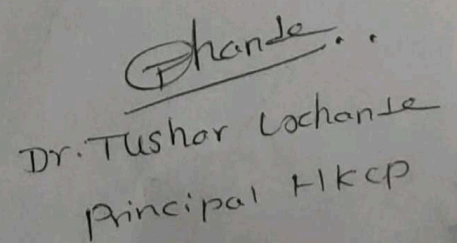 Dr. Tushar Lochande
Principal HKCP